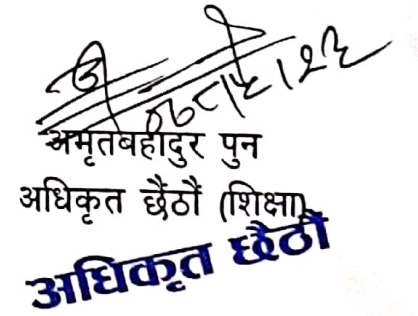 अमृतबहादुर पुन
अधिकृत छैठौं (शिक्षा)
अधिकृत छैठौं